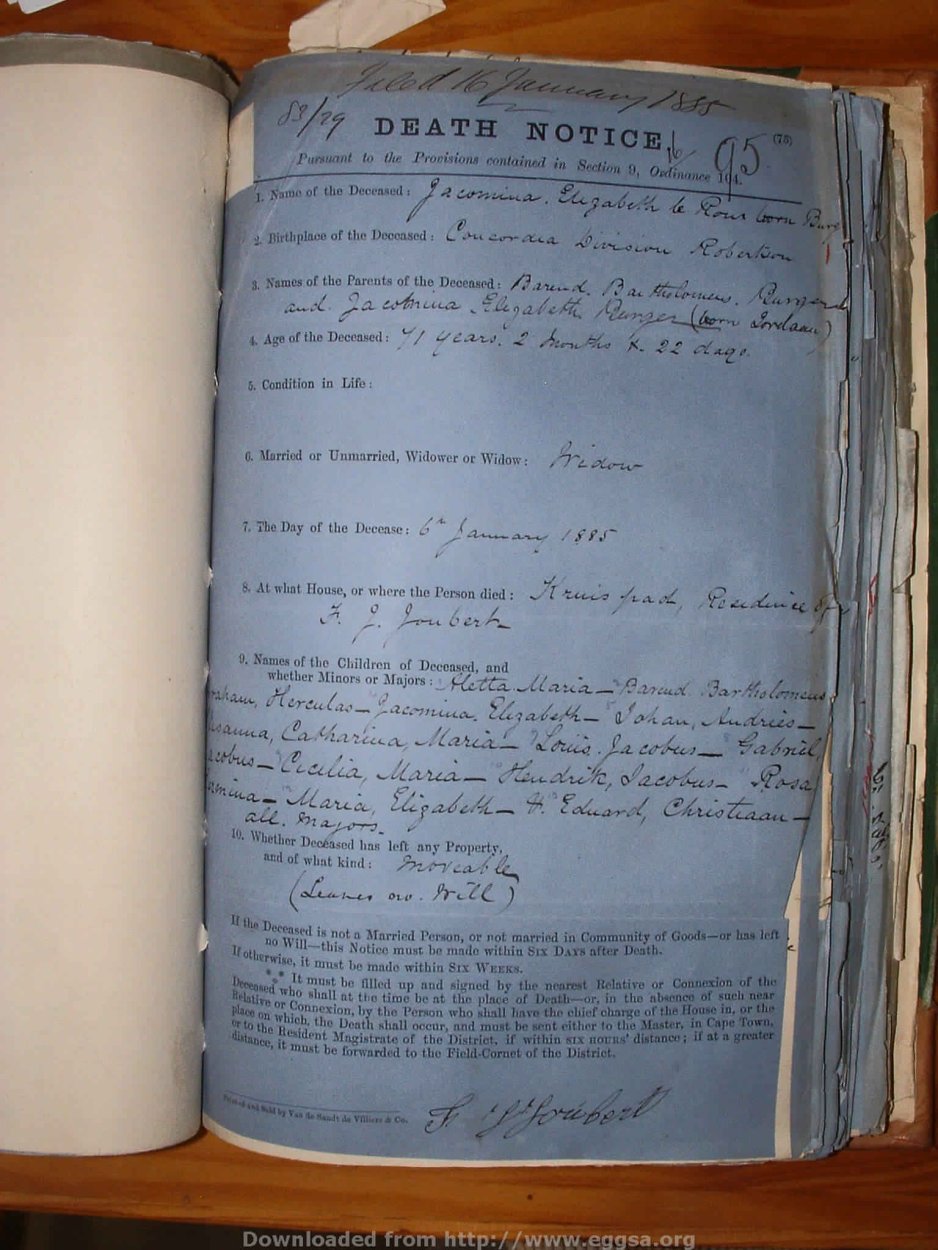 Filed 16 January 1885
83/79
DEATH NOTICE.
95
(75)
Pursuant to the Provisions contained in Section 9, Ordinance 104.
1. Name of the Deceased: Jacomina. Elizabeth le Roux born Burg
2. Birthplace of the Deceased: Concordia Division Robertson
3. Names of the Parents of the Deceased: Barend. Bartholomeus. Burger
and. Jacomina Elizabeth Burger (born Jordaan)
4. Age of the Deceased: 71 years. 2 months & 22 days.
5. Condition in Life:
6. Married or Unmarried, Widower or Widow: Widow
7. The Day of the Decease: 6th January 1885
8. At what House, or where the Person died: Kruis pad, Residence of
F. J. Joubert
9. Names of the Children of Deceased, and
whether Minors or Majors: Aletta Maria – Barend Bartholomeus
raham, Herculas – Jacomina, Elizabeth – Johan, Andries –
usanna, Catharina, Maria – Louis. Jacobus – Gabriel,
acobus – Cicilia, Maria – Hendrik, Jacobus – Rosa
ermina – Maria, Elizabeth – & Eduard, Christiaan –
all. Majors.
10. Whether Deceased has left any Property,
and of what kind: Moveable
(Leaves no. Will)
If the Deceased is not a Married Person, or not married in Community of Goods—or has left
no Will—this Notice must be made within SIX DAYS after Death.
If otherwise, it must be made within SIX WEEKS.
*** It must be filled up and signed by the nearest Relative or Connexion of the
Deceased who shall at the time be at the place of Death—or, in the absence of such near
Relative or Connexion, by the Person who shall have the chief charge of the House in, or the
place on which, the Death shall occur, and must be sent either to the Master, in Cape Town,
or to the Resident Magistrate of the District, if within SIX HOURS' distance; if at a greater
distance, it must be forwarded to the Field-Cornet of the District.
Printed and Sold by Van de Sandt de Villiers & Co.
F J Joubert
Downloaded from http://www.eggsa.org